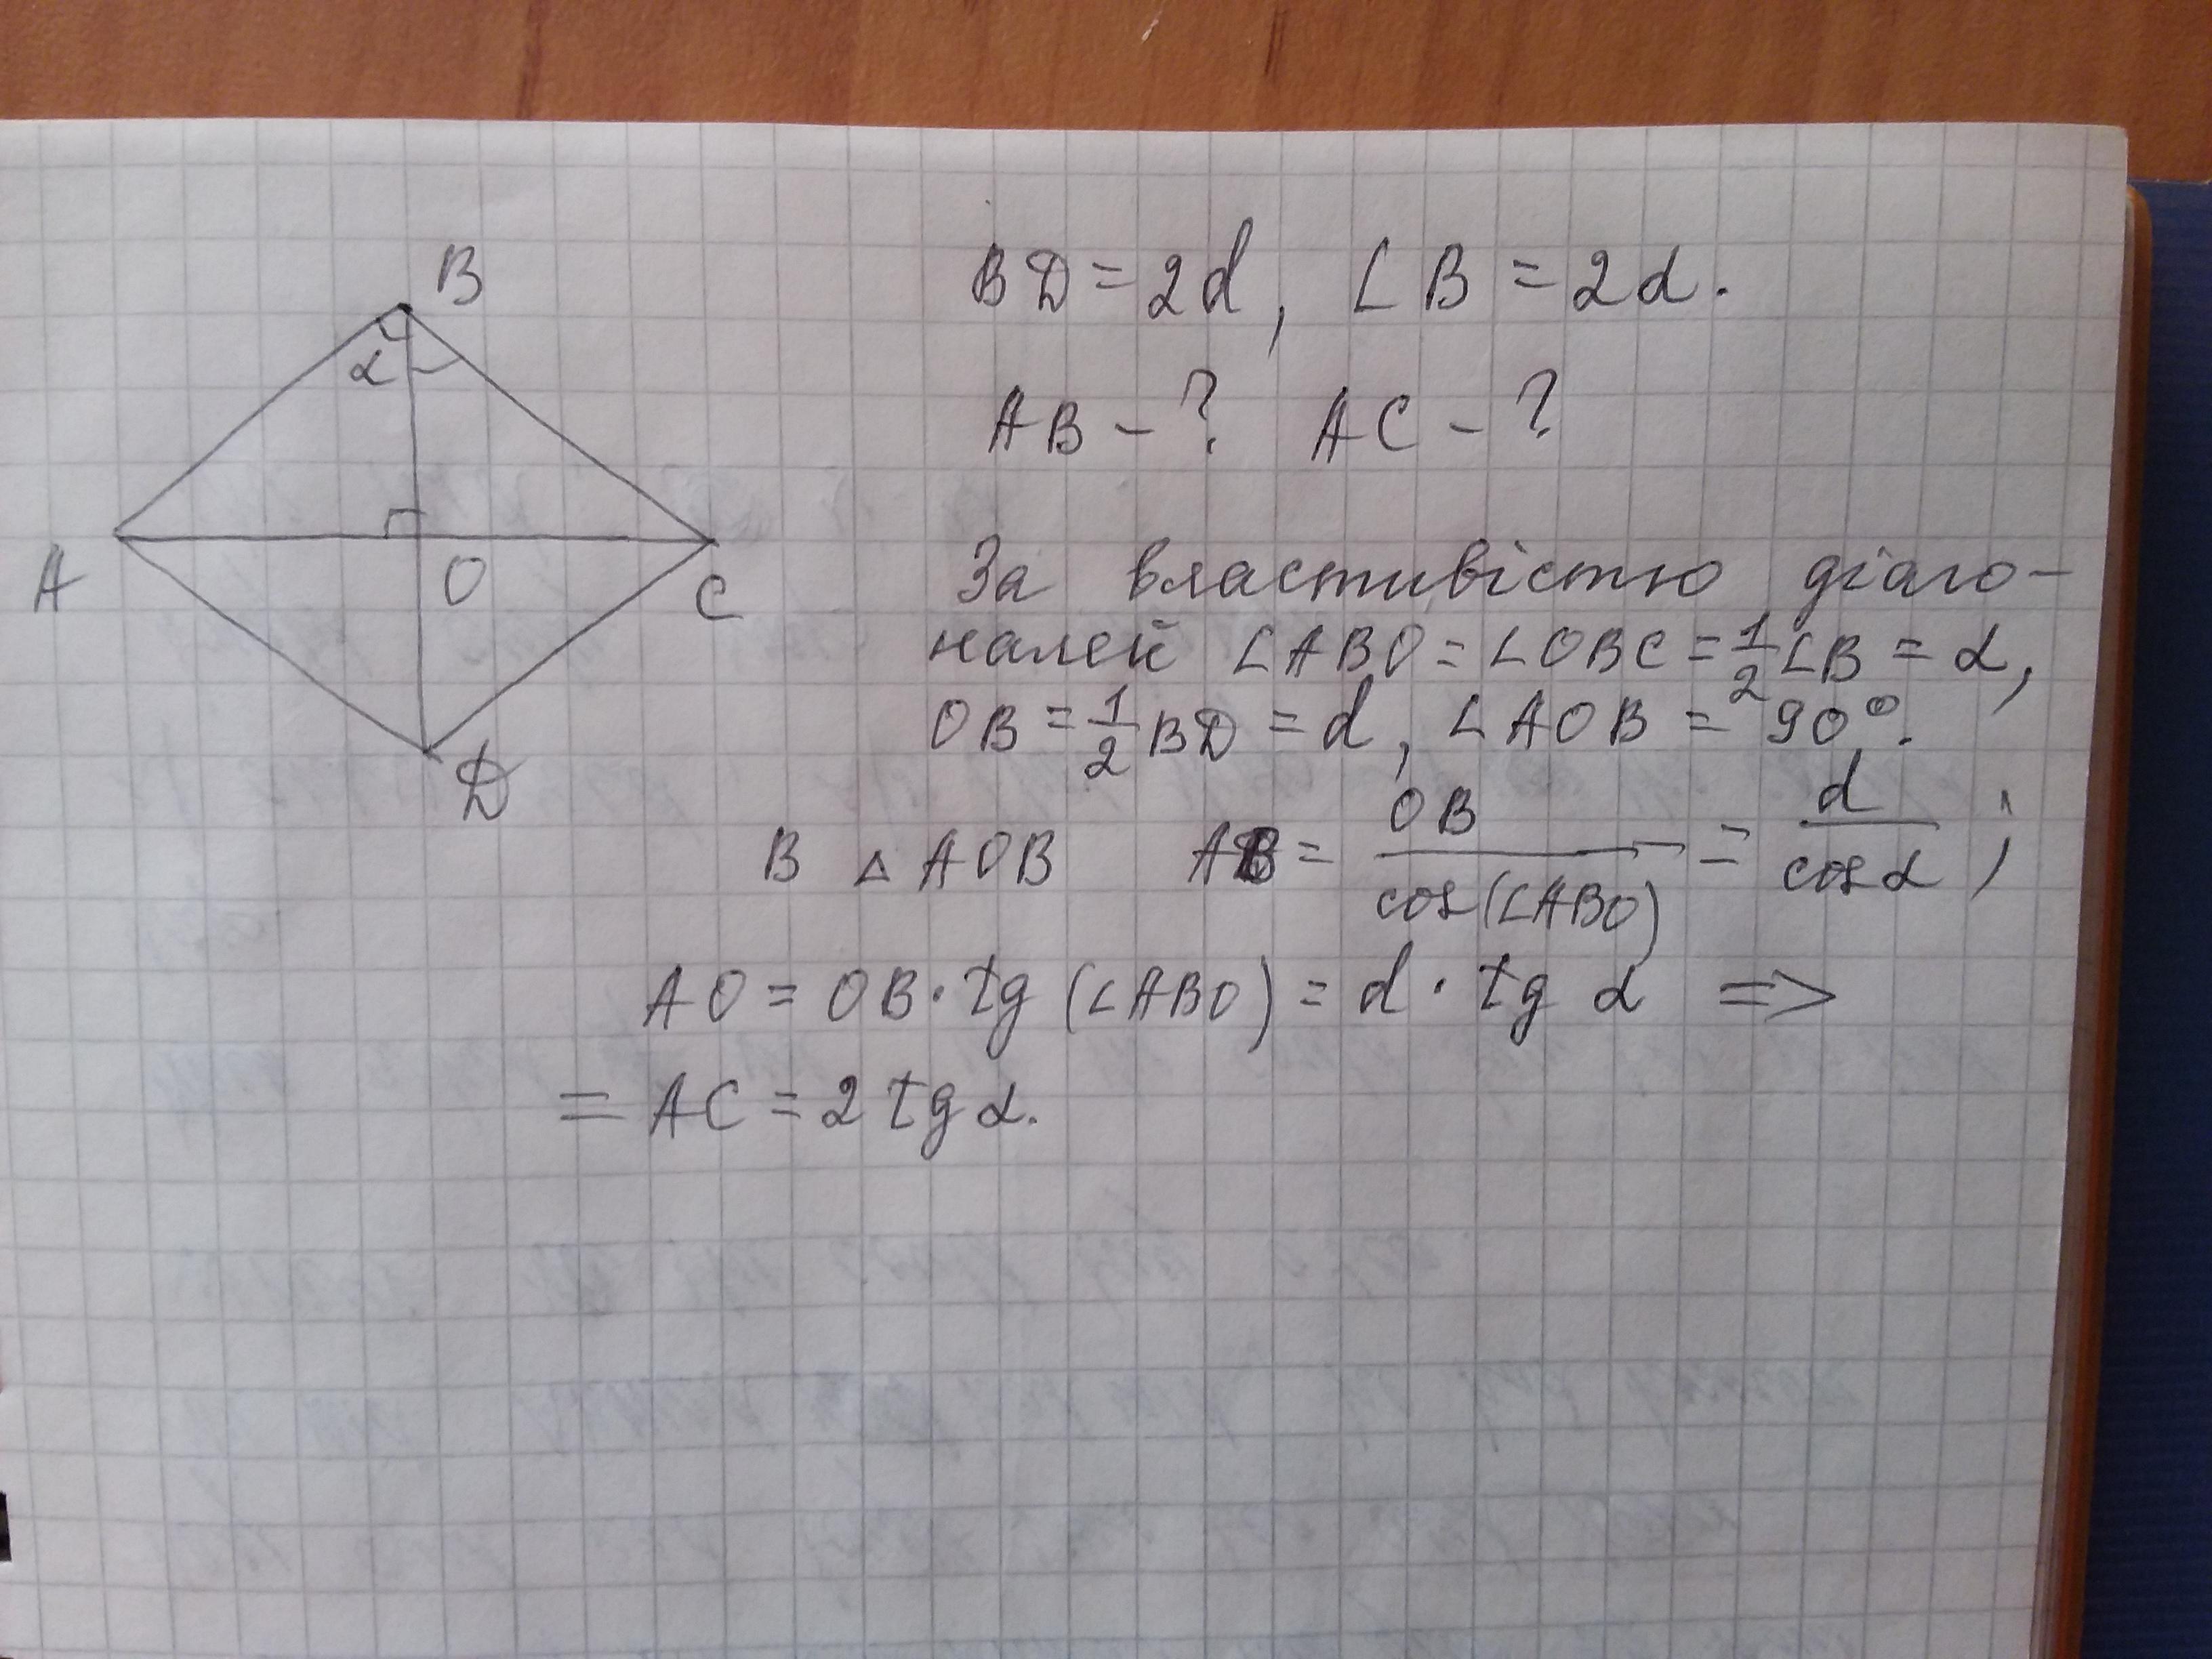 B
α
A
O
C
D
BD = 2d, ∠B = 2α.
AB - ? AC - ?
За властивістю діаго-
налей ∠ABO = ∠OBC = 1/2 ∠B = α,
OB = 1/2 BD = d, ∠AOB = 90°.
В △ AOB AB = OB / cos(∠ABO) = d / cos α ;
AO = OB · tg (∠ABO) = d · tg α =>
= AC = 2 tg α.